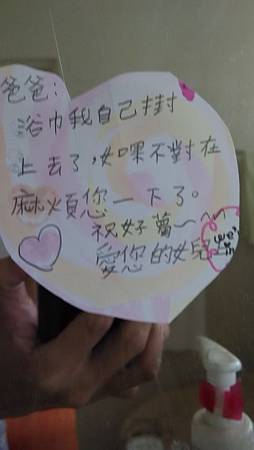 爸爸:
浴巾我自己封
上去了,如果不對在
麻煩您一下了。
祝好萬~~~
愛您的女兒上